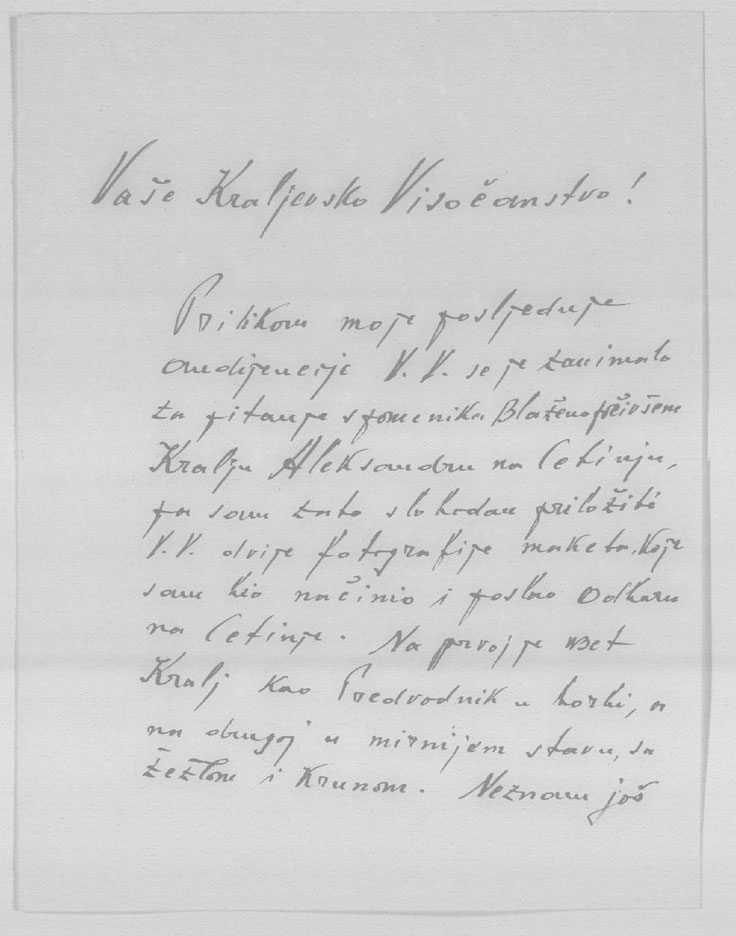 Vaše Kraljevsko Visočanstvo!
Prilikom moje posljednje
audijencije V. V. se je zanimalo
za pitanje spomenika Blaženopočivšem
Kralju Aleksandru na Cetinju,
pa sam zato slobodan priložiti
V. V. dvije fotografije maketa, koje
sam bio načinio i poslao Odboru
na Cetinje. Na prvoj je uzet
Kralj kao Predvodnik u borbi, a
na drugoj u mirnijem stavu, sa
žezlom i krunom. Neznam još